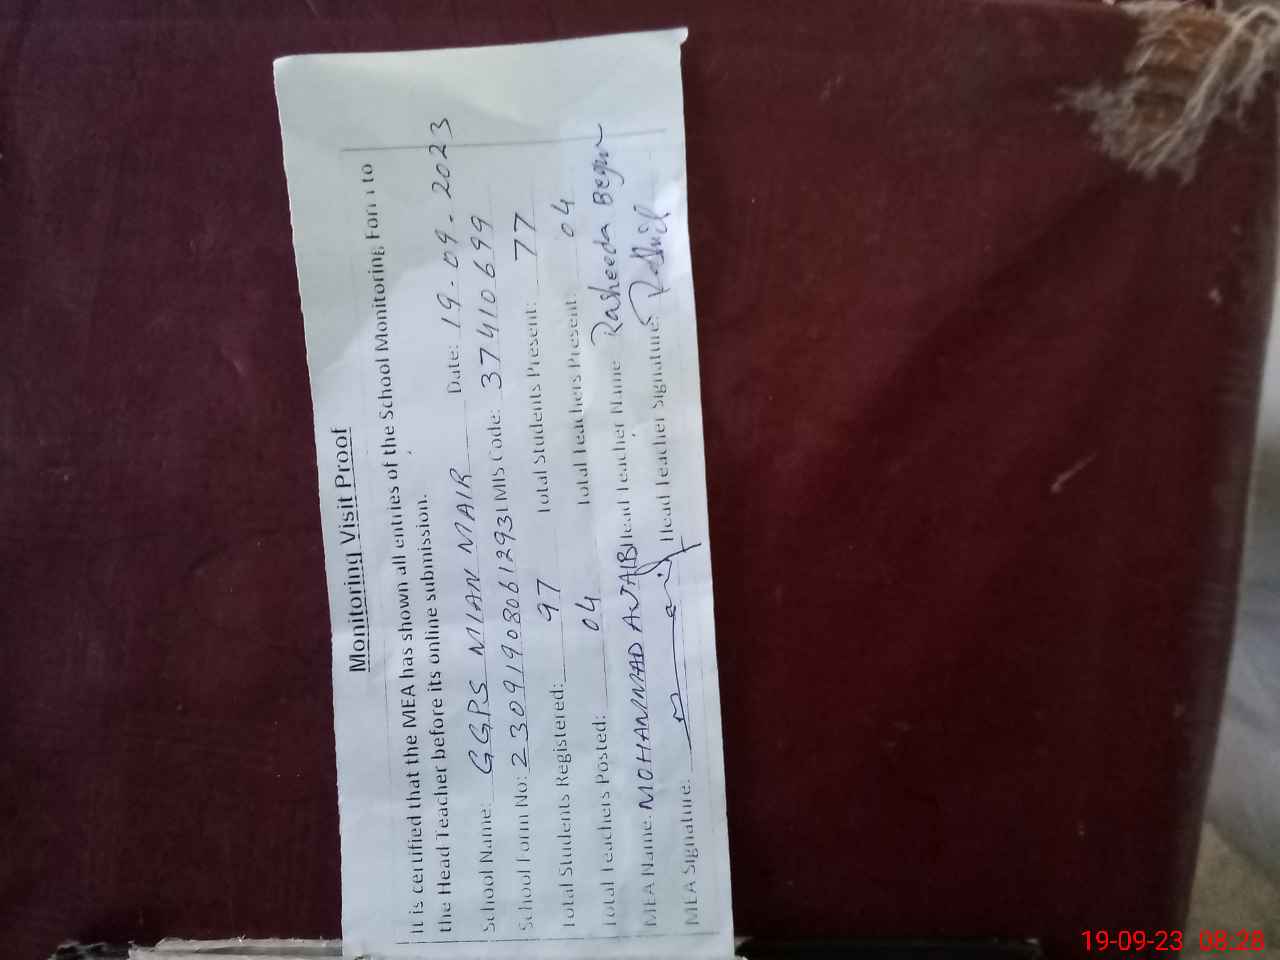 Monitoring Visit Proof
It is certified that the MEA has shown all entries of the School Monitoring Form to
the Head Teacher before its online submission.
School Name: GGPS MIAN MAIR Date: 19-09-2023
School Form No: 23091908061293 EMIS Code: 37410699
Total Students Registered: 97 Total Students Present: 77
Total Teachers Posted: 04 Total Teachers Present: 04
MEA Name: MOHAMMAD Head Teacher Name Rasheeda Begum
MEA Signature: Head Teacher Signature:
19-09-23 08:28